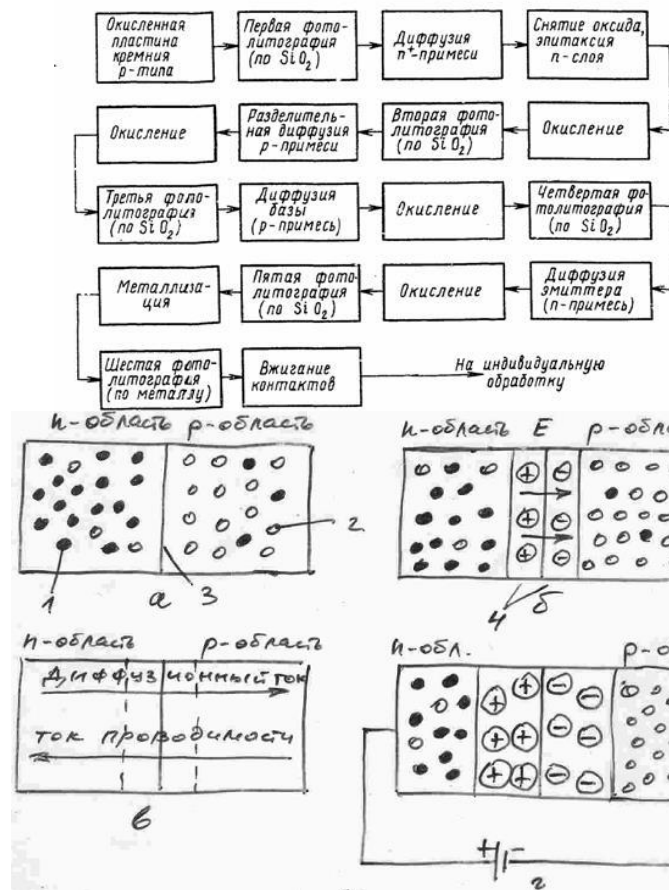 Окисленная
пластина
кремния
р-типа
Первая фото-
литография
(по SiO₂)
Диффузия
n⁺-примеси
Снятие оксида,
эпитаксия
n-слоя
Окисление
Разделитель-
ная диффузия
р-примеси
Вторая фото-
литография
(по SiO₂)
Окисление
Третья фото-
литография
(по SiO₂)
Диффузия
базы
(р-примесь)
Окисление
Четвертая фо-
толитография
(по SiO₂)
Металлиза-
ция
Пятая фото-
литография
(по SiO₂)
Окисление
Диффузия
эмиттера
(n-примесь)
Шестая фото-
литография
(по металлу)
Вжигание
контактов
На индивидуальную
обработку
n-область р-область
1 а 3 2
n-область E р-обла
+ -
+ -
+ -
4 б
n-область р-область
Диффузионный ток
ток проводимости
в
n-обл. р-о
+ + - -
+ + - -
+ + - -
+ -
г